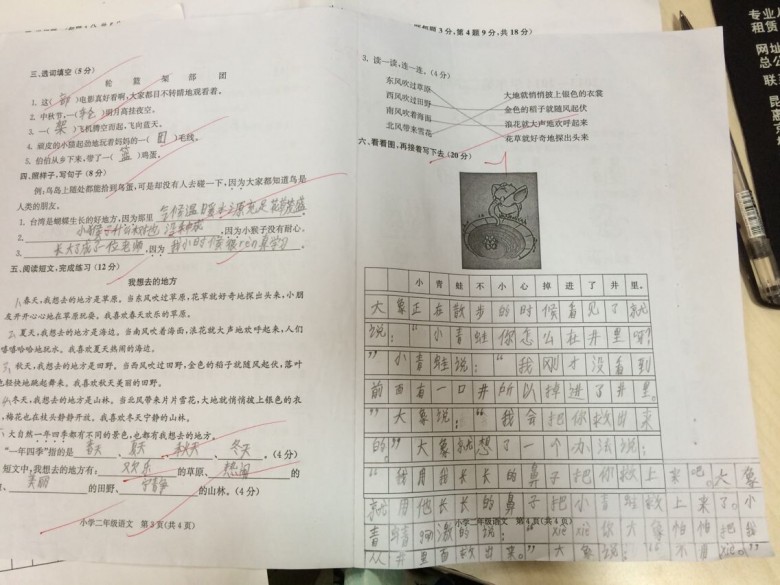 三、选词填空(5分)
轮 篮 架 部 团
1. 这( 部 )电影真好看啊,大家都目不转睛地观看着。
2. 中秋节,一( 轮 )明月高挂夜空。
3. 一( 架 )飞机腾空而起,飞向蓝天。
4. 顽皮的小猫起劲地玩着妈妈的一( 团 )毛线。
5. 伯伯从乡下来,带了一( 篮 )鸡蛋。
四、照样子,写句子(8分)
例:鸟岛上随处都能拾到鸟蛋,可是却没有人去碰一下,因为大家都知道鸟是
人类的朋友。
1. 台湾是蝴蝶生长的好地方,因为那里 气候温暖水源充足花草茂盛
2. 因为小猴子没有耐心。
3. 长大了 老师 ,因为 我小时候 学习。
五、阅读短文,完成练习(12分)
我想去的地方
春天,我想去的地方是草原。当东风吹过草原,花草就好奇地探出头来,小朋
友开开心心地在草原玩耍。我喜欢春天欢乐的草原。
夏天,我想去的地方是海边。当南风吹着海面,浪花就大声地欢呼起来,人们
嘻嘻哈哈地玩水。我喜欢夏天热闹的海边。
秋天,我想去的地方是田野。当西风吹过田野,金色的稻子就随风起伏,落叶
也轻快地跳起舞来。我喜欢秋天美丽的田野。
冬天,我想去的地方是山林。当北风带来片片雪花,大地就悄悄披上银色的衣
,梅花也在枝头静静开放。我喜欢冬天宁静的山林。
大自然一年四季都有不同的景色,也都有我想去的地方。
“一年四季”指的是 春天、夏天、秋天、冬天。(4分)
短文中,我想去的地方有: 欢乐 的草原、 热闹 的
、 美丽 的田野、 宁静 的山林。(4分)
小学二年级语文 第3页(共4页)
3分,第4题9分,共18分)
3. 读一读,连一连。(4分)
东风吹过草原
大地就悄悄披上银色的衣裳
西风吹过田野
金色的稻子就随风起伏
南风吹着海面
浪花就大声地欢呼起来
北风带来雪花
花草就好奇地探出头来
六、看看图,再接着写下去(20分)
小青蛙不小心掉进了井里。
大象正在散步的时候看见了就
说:“小青蛙你怎么在井里呀?
”小青蛙说:“我刚才没看到
前面有一口井所以掉进了井里。
”大象说:“我会把你救出来
的。”大象就想了一个办法说:
“我用我长长的鼻子把你救上来吧。大象
就用他长长的鼻子把小青蛙救上来了。小
青蛙 的说:“xiè xiè你大象 把我
从井里面救出来。”大象说:“不用xiè。”
小学二年级语文 第4页(共4页)
专业人
租赁
网址
总公
联
昆